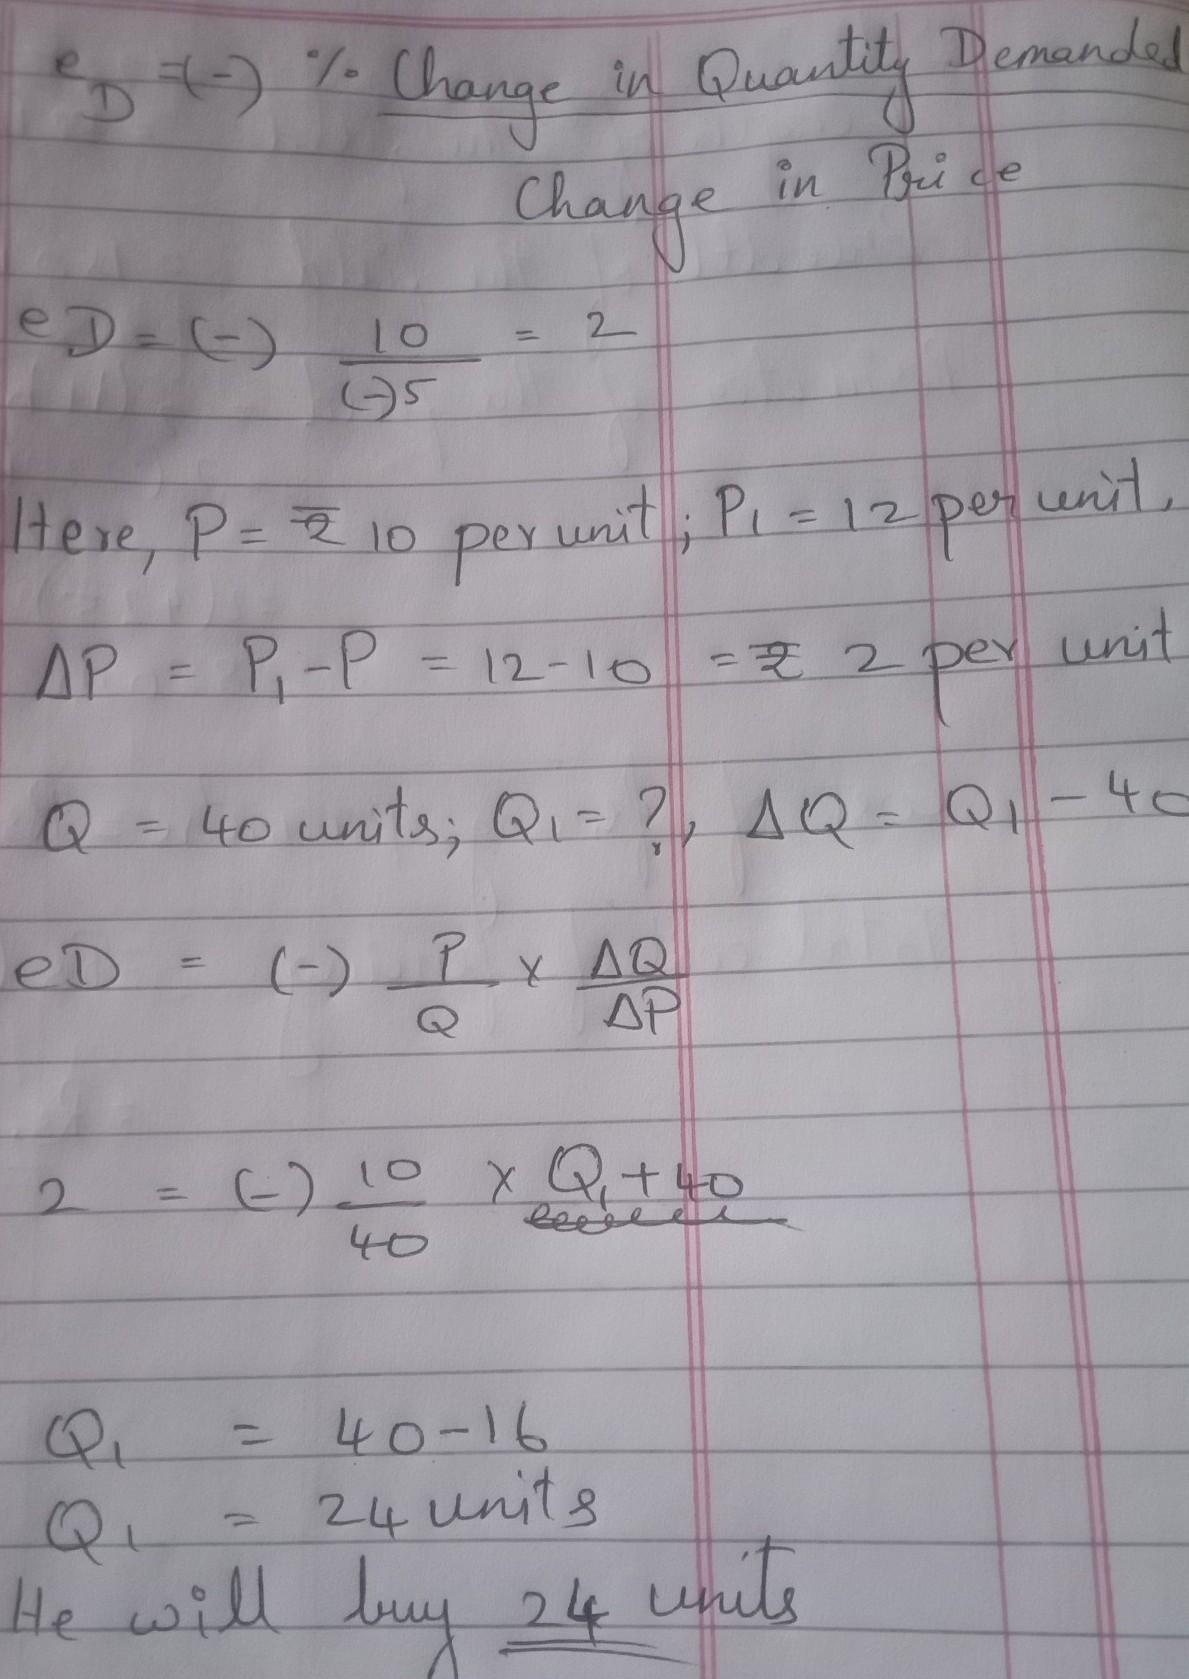 eD = (-) % Change in Quantity Demanded
Change in Price
eD = (-) 10 = 2
(-)5
Here, P = ₹ 10 per unit; P1 = 12 per unit,
ΔP = P1 - P = 12 - 10 = ₹ 2 per unit
Q = 40 units; Q1 = ?, ΔQ = Q1 - 40
eD = (-) P × ΔQ
Q ΔP
2 = (-) 10 × Q1 + 40
40
Q1 = 40 - 16
Q1 = 24 units
He will buy 24 units